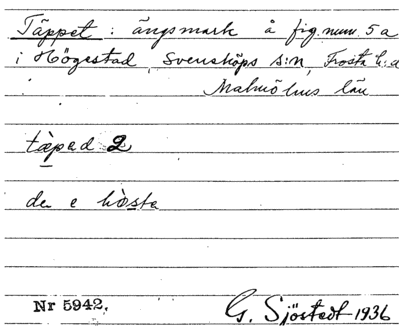 Täppet : ängsmark å fig.num. 5a
i Högestad, Svensköps s:n, Frosta h:a
Malmöhus län
täpad 2
de e hösta
Nr 5942. G. Sjöstedt 1936